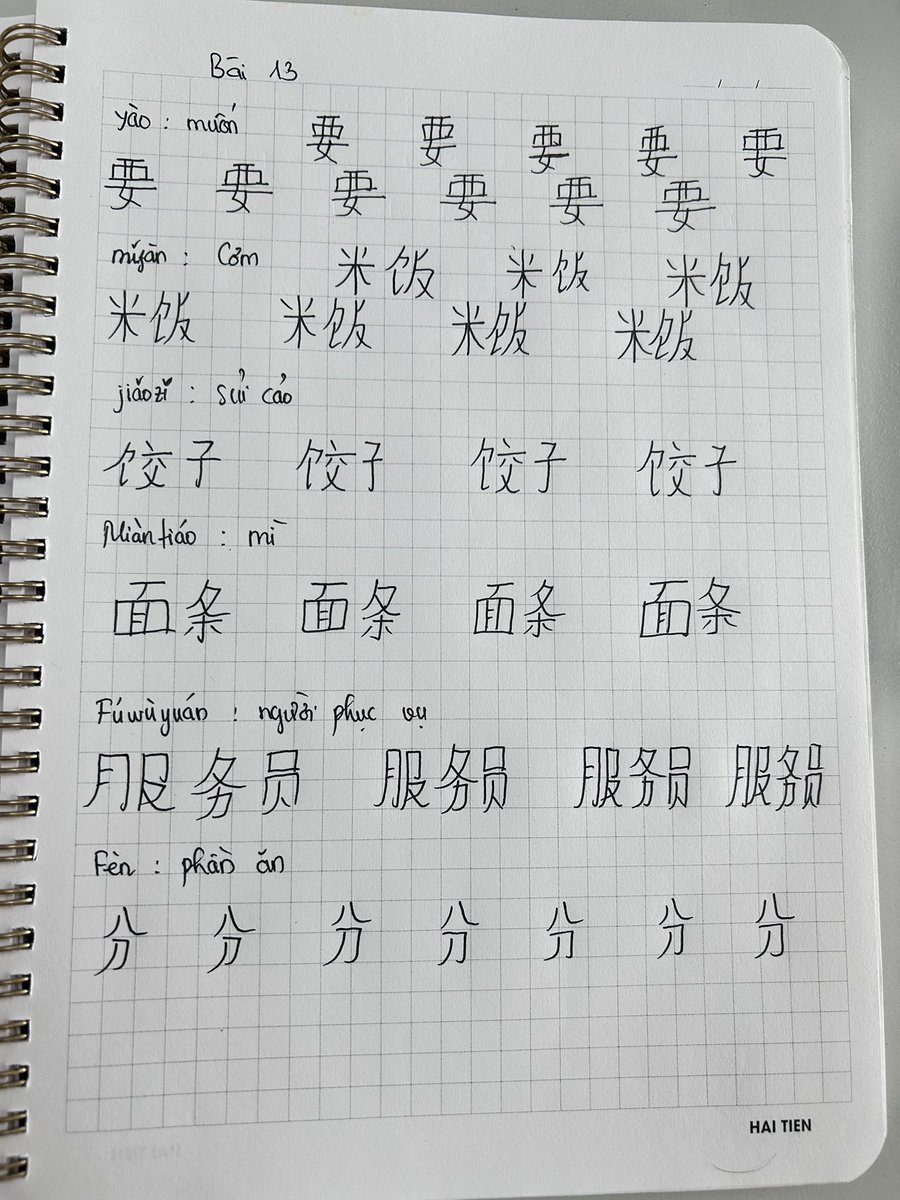 Bài 13
yào : muốn 要 要 要 要 要
要 要 要 要 要 要
mǐfàn : Cơm 米饭 米饭 米饭
米饭 米饭 米饭 米饭
jiǎozǐ : sủi cảo
饺子 饺子 饺子 饺子
Miàntiáo : mì
面条 面条 面条 面条
Fúwùyuán : người phục vụ
服务员 服务员 服务员 服务员
Fèn : phần ăn
分 分 分 分 分 分 分
HAI TIEN